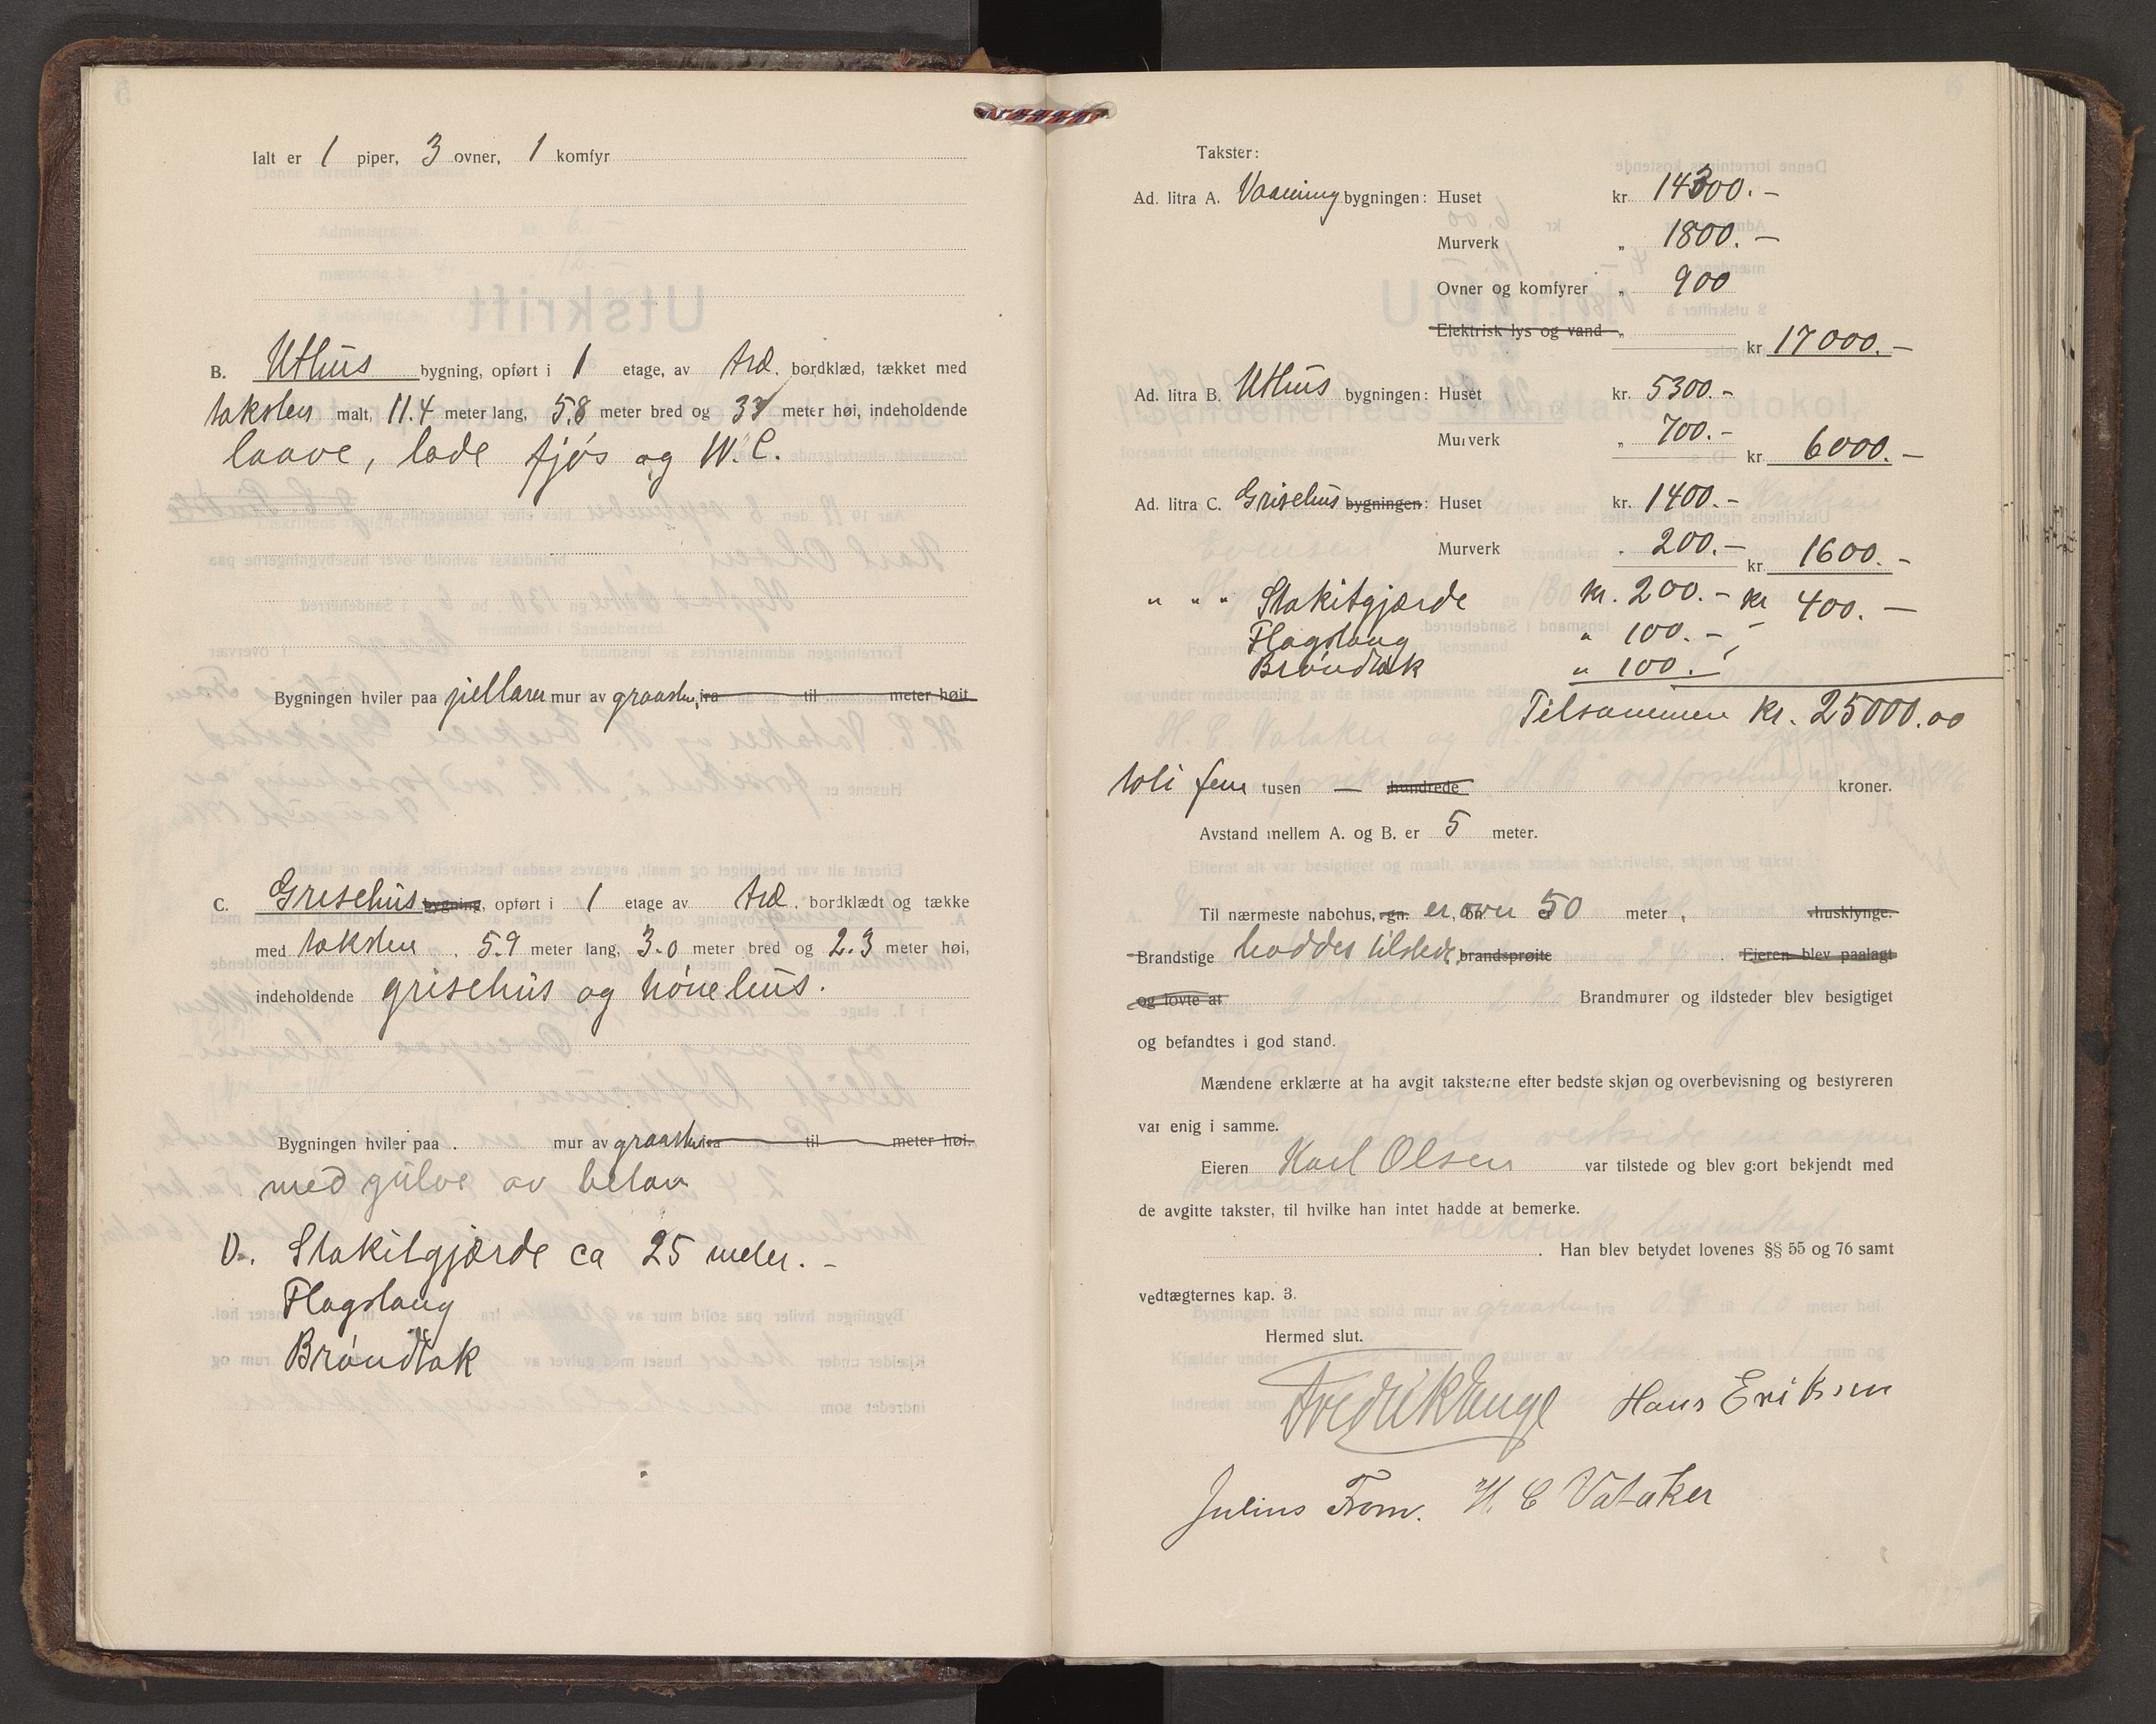 Ialt er 1 piper, 3 ovner, 1 komfyr
B. Uthus bygning, opført i 1 etage, av træ. bordklæd, tækket med
taksten malt, 11.4 meter lang, 5.8 meter bred og meter høi, indeholdende
laave, lade fjøs og W.C.
Bygningen hviler paa pillarer mur av graasten, fra til meter høit
C. Grisehus bygning, opført i 1 etage av træ. bordklædt og tække
med taksten. 5.9 meter lang, 3.0 meter bred og 2.3 meter høi,
indeholdende grisehus og hønehus.
Bygningen hviler paa . mur av graasten fra til meter høi.
med gulve av beton
D. Stakitgjærde ca 25 meter. -
Flagstang
Brøndtak
Takster:
Ad. litra A. Vaaning bygningen: Huset kr. 14300.-
Murverk " 1800.-
Ovner og komfyrer " 900
Elektrisk lys og vand " kr 17000.-
Ad. litra B. Uthus bygningen: Huset kr. 5300.-
Murverk " 700.- kr. 6000.-
Ad. litra C. Grisehus bygningen: Huset kr. 1400.-
Murverk " 200.- kr. 1600.-
" " " Stakitgjærde kr. 200.- kr 400.-
Flagstang " 100.-
Brøndtak " 100.-
Tilsammen kr. 25000.00
toti fem tusen — hundrede kroner.
Avstand mellem A. og B. er 5 meter.
Til nærmeste nabohus, gn. er, over 50 meter, husklynge.
Brandstige haddes tilstede, brandsprøite . Eieren blev paalagt
og lovte at Brandmurer og ildsteder blev besigtiget
og befandtes i god stand.
Mændene erklærte at ha avgit taksterne efter bedste skjøn og overbevisning og bestyreren
var enig i samme.
Eieren Karl Olsen var tilstede og blev gjort bekjendt med
de avgitte takster, til hvilke han intet hadde at bemerke.
. Han blev betydet lovenes §§ 55 og 76 samt
vedtægternes kap. 3.
Hermed slut.
Fredrik Lange Hans Eriksen
Julius From. H. C Vataker